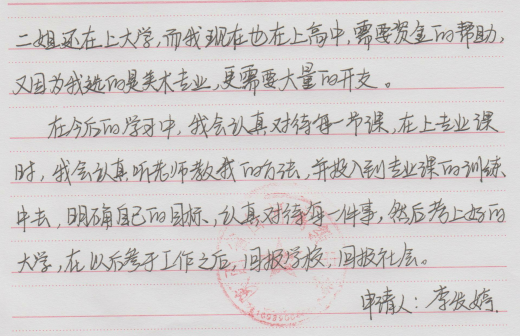 二姐还在上大学,而我现在也在上高中,需要资金的帮助,
又因为我选的是美术专业,更需要大量的开支。
在今后的学习中,我会认真对待每一节课,在上专业课
时,我会认真听老师教我的方法,并投入到专业课的训练
中去,明确自己的目标、认真对待每一件事,然后考上好的
大学,在以后参于工作之后,回报学校,回报社会。
申请人:李俊婷